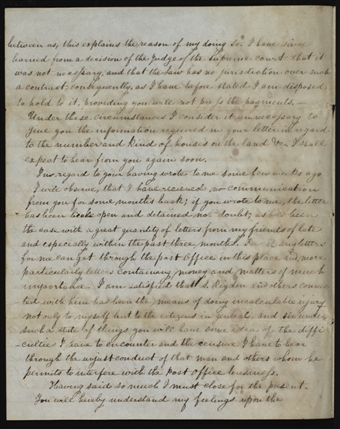 between us, this explains the reason of my doing so. I have since
learned from a decision of the Judge of the Supreme court that it
was not necessary, and that the law has no jurisdiction over such
a contract; consequently, as I have before stated I am disposed
to hold to it, providing you will not press the payments.—
Under these circumstances I consider it unnecessary to
give you the information required in your letter in regard
to the number and kind of houses on the land &c. I shall
expect to hear from you again soon.
In regard to your having wrote to me some weeks ago
I will observe, that I have received no communication
from you for some months back; if you wrote to me, the letter
has been broke open and detained no doubt, as has been
the case with a great quantity of letters from my friends of late
and especially within the past three months.
for me can get through the post Office in this place and more
particularly letters containing money and matters of much
importance. I am satisfied that S. Rigdon and others connec-
ted with him has been the means of doing incalculable injury
not only to myself but to the citizens in general, and sir under
such a state of things you will have some idea of the diffi-
culties I have to encounter and the censure I have to bear
through the unjust conduct of that man and others whom he
permits to interfere with the post office business.
Having said so much I must close for the present.
You will hereby understand my feelings upon the